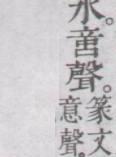 水。𠶷聲。
篆文
意聲